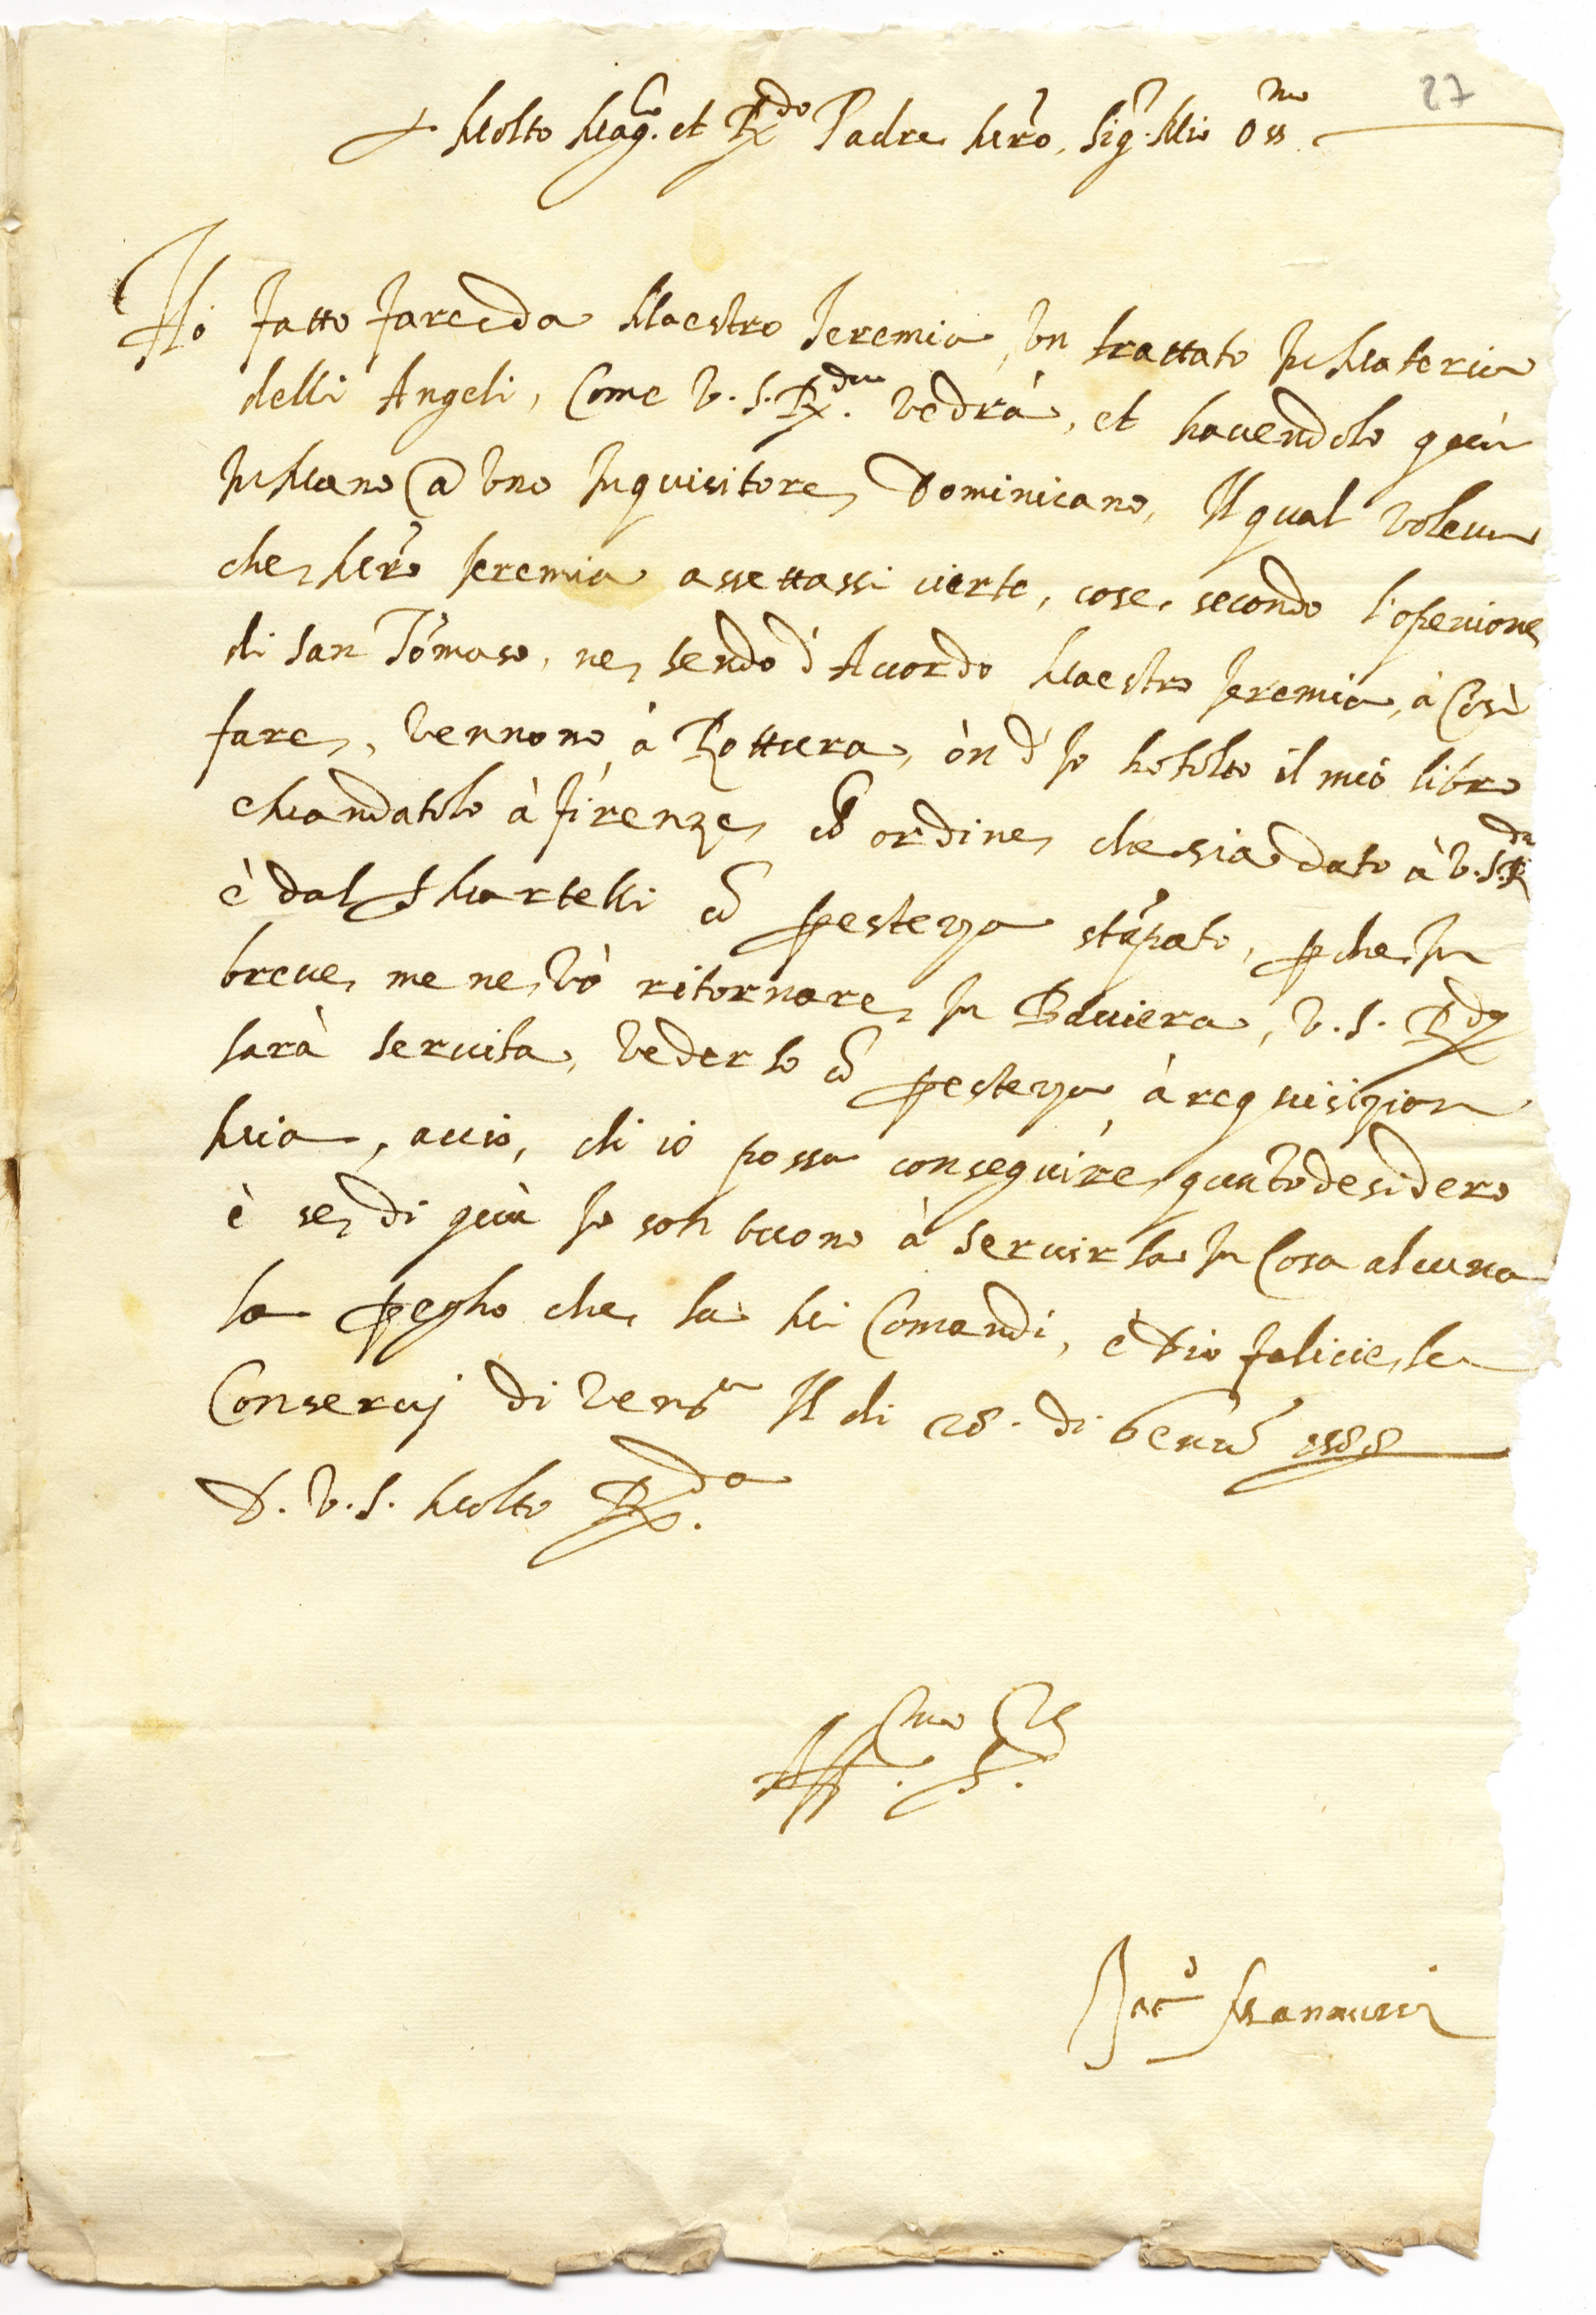 27
Molto Mag.co et R.do Padre Mro, Sig.r Mio Oss.mo
Hò fatto fare da Maestro Ieremia, un trattato in Materia
delli Angeli, Come V. S. R.da vedrà, et havendolo quà
in Mano a uno Inquisitore Dominicano, Il qual voleva
che Mro Ieremia assettassi cierte, cose, secondo l'openione
di San Tomaso, ne sendo d'Accordo Maestro Ieremia, à Così
fare, vennono à Rottura, ònd' Io hò tolto il mio libro
e Mandatolo à firenze cõ ordine che sia dato à V. S. R.da
è dal Martelli cõ prestezza stãpato, p che In
breve me ne vò ritornare In Baviera, V. S. R.da
sarà servita, vederlo cõ prestezza à requisizion
Mia, acciò, ch io possa conseguire quãto desidero
è se di quà Io son buono à servirla In Cosa alcuna
la pregho che la Mi Comandi, è Dio felicie la
Conservj di Ven.a Il di 28. di Genõ 1588
D. V. S. Molto R.da
Aff.mo S.
Iac.o Mannucci